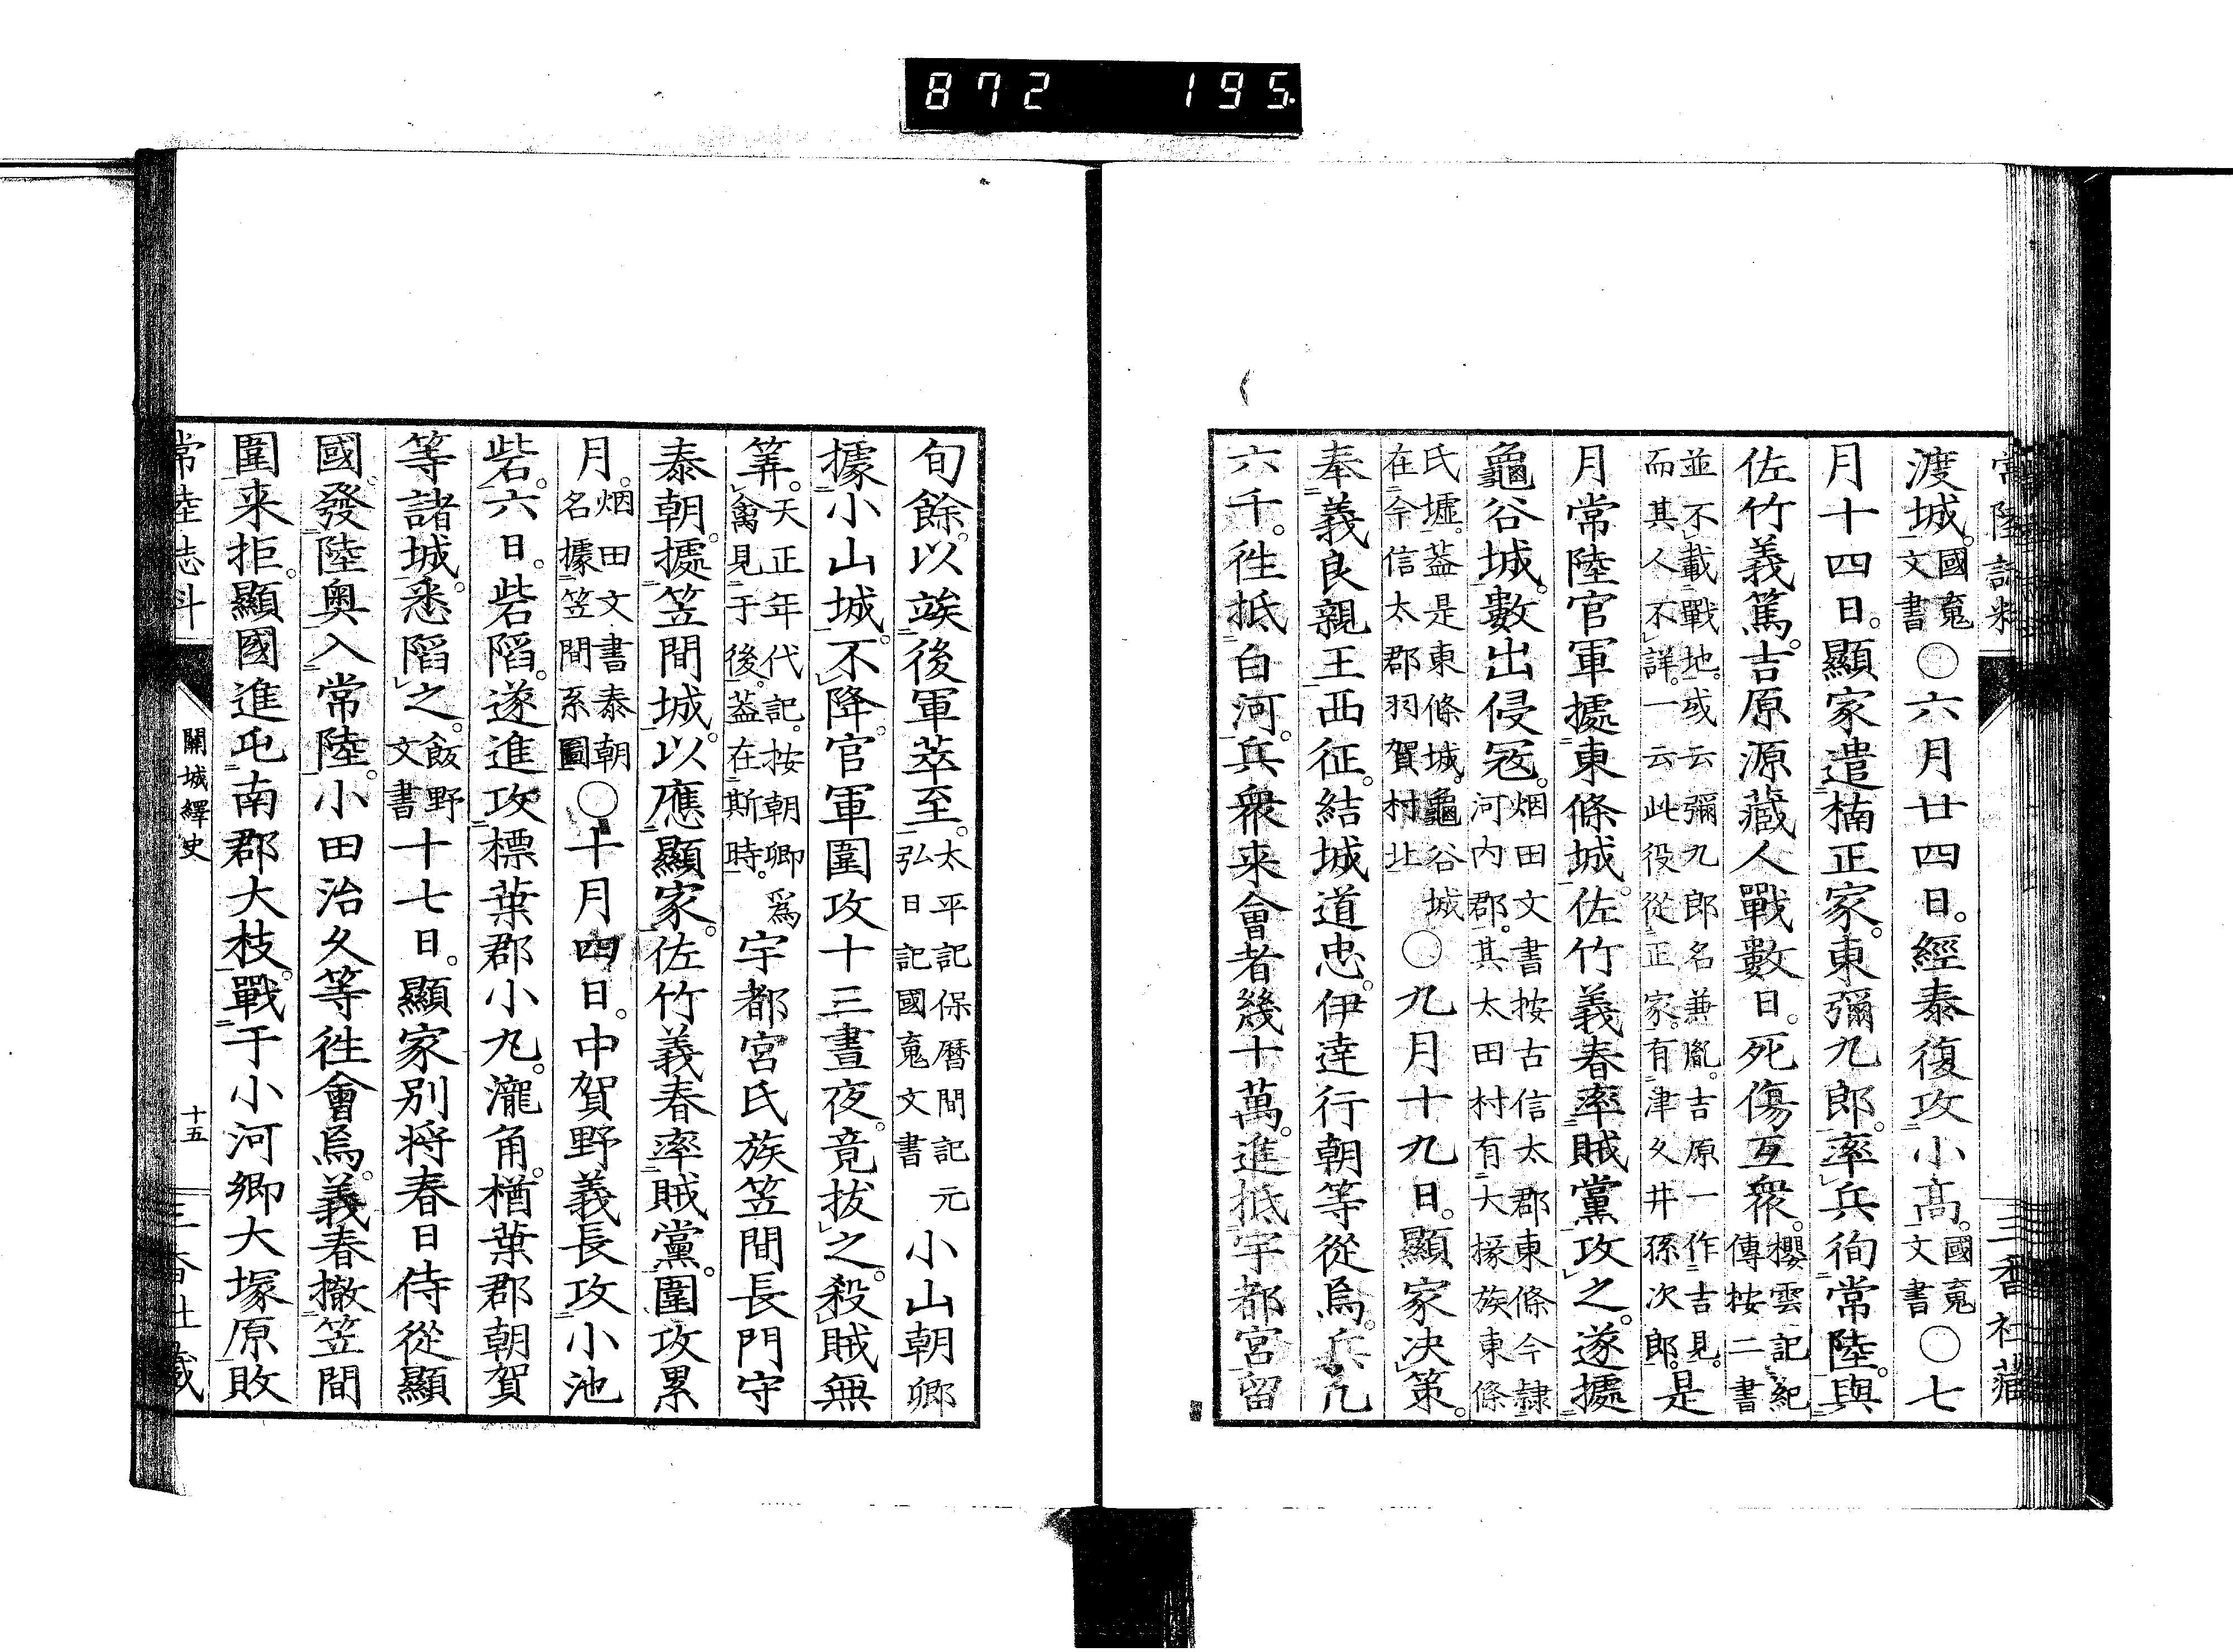 872 195.
渡城。國䰟文書○六月廿四日。經泰復攻小高。國䰟文書○七
月十四日。顯家遣楠正家。東彌九郎。率兵徇常陸。與
佐竹義篤。吉原源藏人戰數日。死傷互衆。櫻雲記紀傳按二書
並不載戰地。或云彌九郎名兼胤。吉原一作吉見。而其人不詳。一云此役從正家。有津久井孫次郎。是
月常陸官軍據東條城。佐竹義春率賊黨攻之。遂據
龜谷城。數出侵冦。烟田文書按古信太郡東條今隷河内郡。其太田村有大掾族東條
氏墟。葢是東條城。龜谷城在今信太郡羽賀村北○九月十九日。顯家決策。
奉義良親王西征。結城道忠。伊達行朝等從焉。兵凡
六千。徃抵白河。兵衆來會者幾十萬。進抵宇都宮留
旬餘。以竢後軍萃至。太平記保暦間記元弘日記國䰟文書小山朝郷
據小山城不降。官軍圍攻十三晝夜。竟拔之。殺賊無
筭。天正年代記。按朝郷爲禽見于後。葢在斯時。宇都宮氏族笠間長門守
泰朝。據笠間城。以應顯家。佐竹義春率賊黨。圍攻累
月。烟田文書泰朝名據笠間系圖○十月四日。中賀野義長攻小池
砦。六日。砦陷。遂進攻標葉郡小丸。瀧角。楢葉郡朝賀
等諸城。悉陷之。飯野文書十七日。顯家别將春日侍從顯
國。發陸奥入常陸。小田治久等徃會焉。義春撤笠間
圍来拒。顯國進屯南郡大枝。戰于小河郷大塚原敗
常陸志料
關城繹史
十五